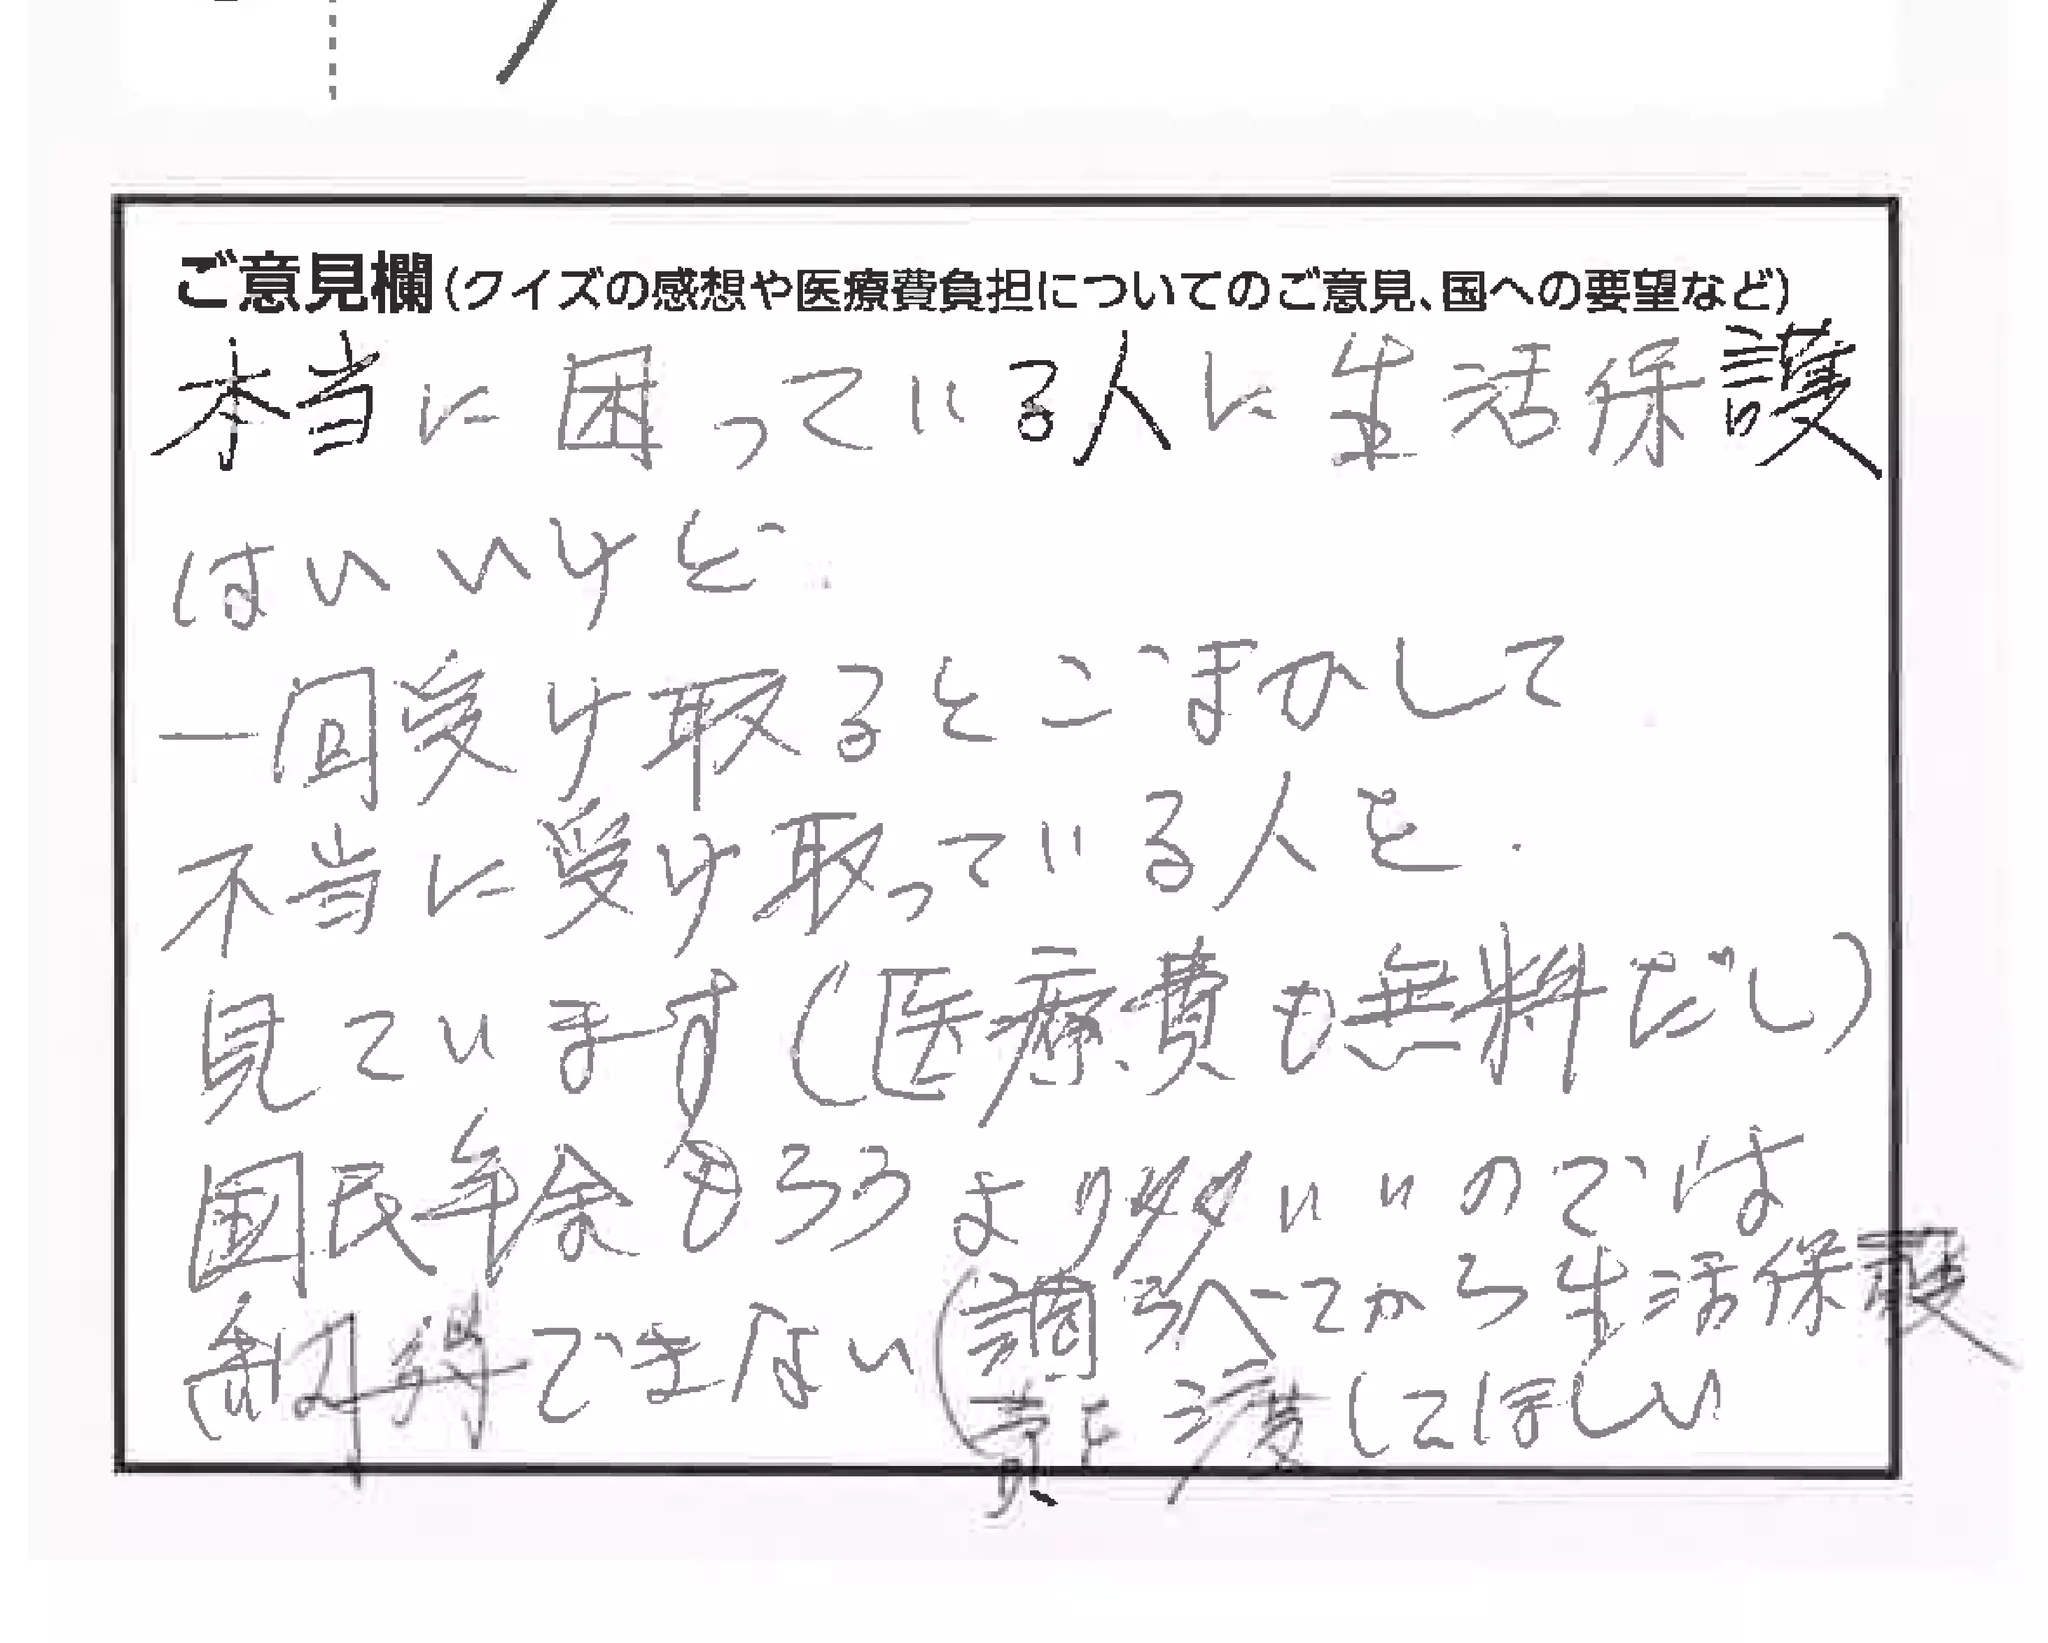 ご意見欄(クイズの感想や医療費負担についてのご意見、国への要望など)
本当に困っている人に生活保護
はいいけど
一回受け取るとごまかして
不当に受け取っている人を
見ています(医療費も無料だし)
国民年金もらうより多いのでは
納得できない(調べてから生活保護
費渡してほしい